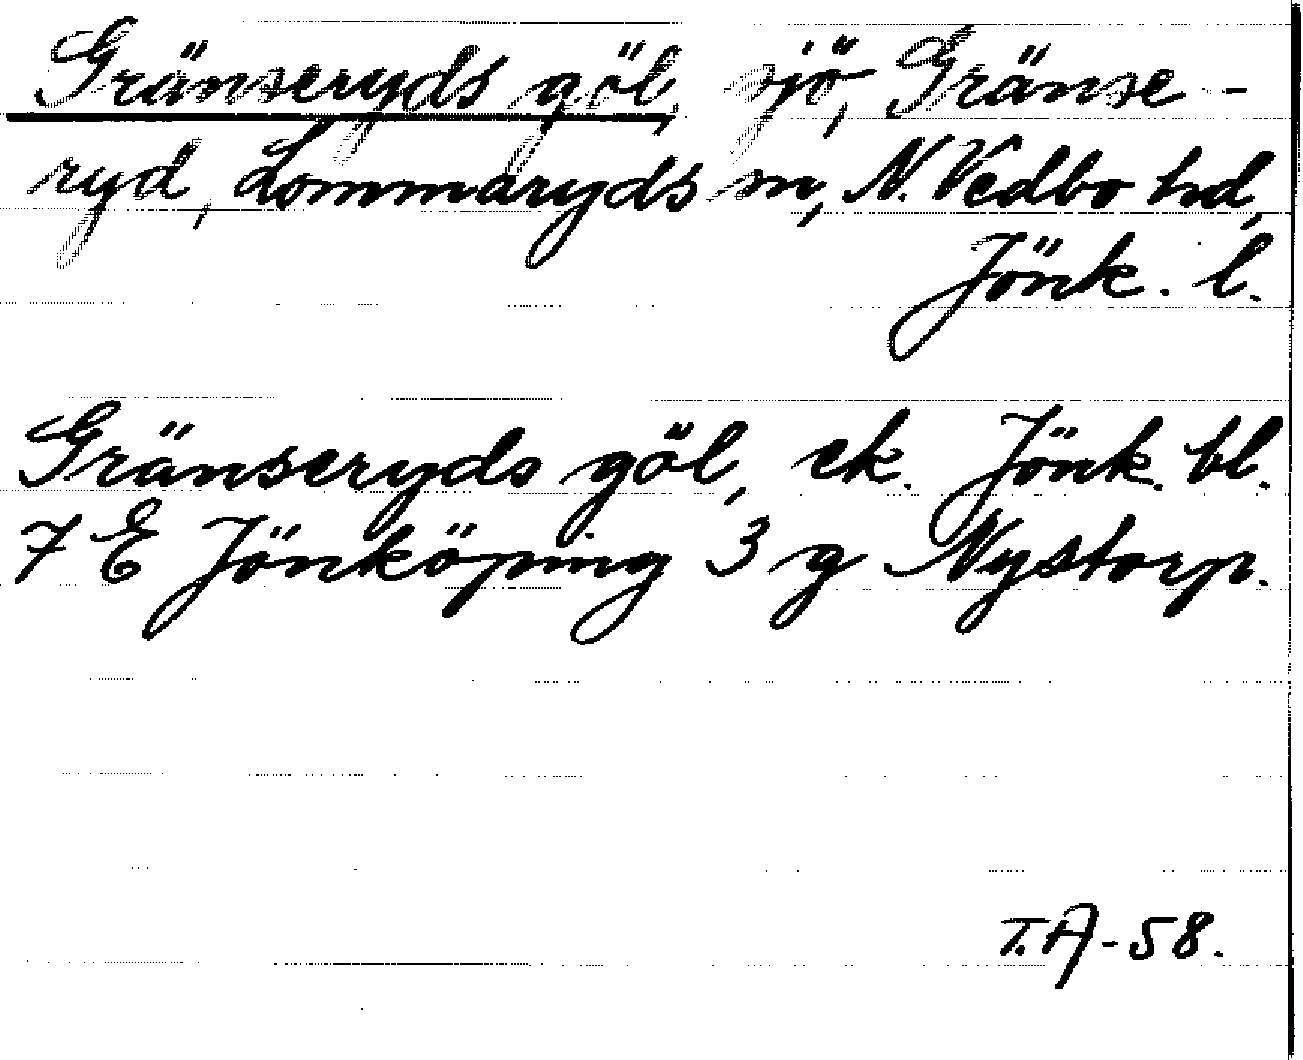 Gränseryds göl, sjö, Gränse-
ryd, Lommaryds sn, N. Vedbo hd,
Jönk. l.
Gränseryds göl, ek. Jönk. bl.
7 E Jönköping 3 g Nystorp.
T.A-58.